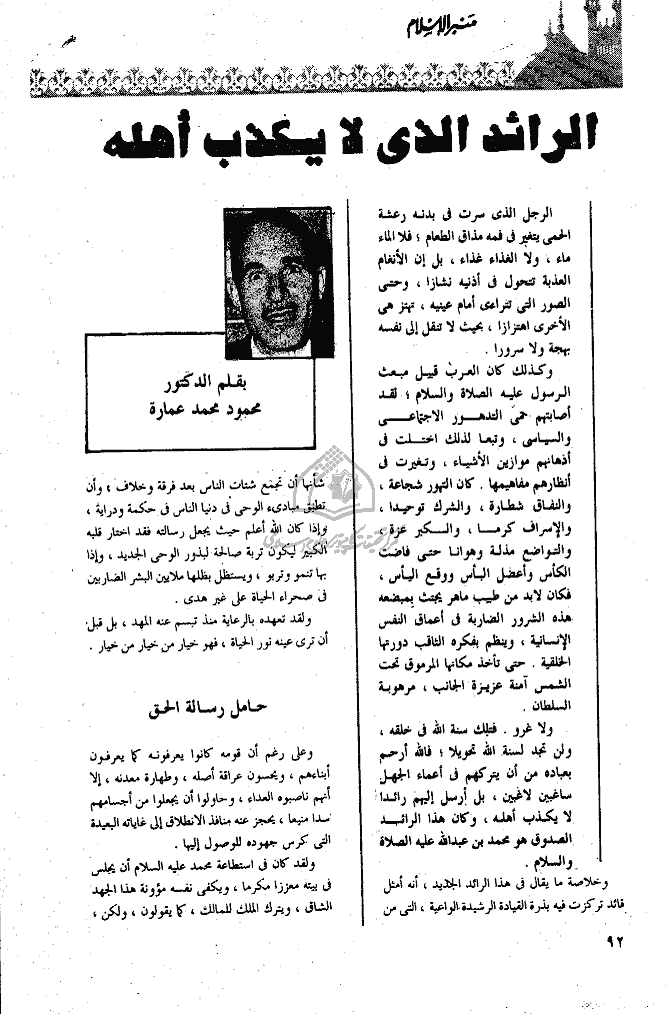 منبر الإسلام
الرائد الذى لا يكذب أهله
الرجل الذى سرت فى بدنه رعشة
الحمى يتغير فى فمه مذاق الطعام ؛ فلا الماء
ماء ، ولا الغذاء غذاء ، بل إن الأنغام
العذبة تتحول فى أذنيه نشازا ، وحتى
الصور التى تتراءى أمام عينيه ، تهتز هى
الأخرى اهتزازا ، بحيث لا تنقل إلى نفسه
بهجة ولا سرورا .
وكذلك كان العرب قبيل مبعث
الرسول عليه الصلاة والسلام ؛ لقد
أصابتهم حمى التدهور الاجتماعى
والسياسى ، وتبعا لذلك اختلت فى
أذهانهم موازين الأشياء ، وتغيرت فى
أنظارهم مفاهيمها . كان التهور شجاعة ،
والنفاق شطارة ، والشرك توحيدا ،
والإسراف كرما ، والكبر عزة ،
والتواضع مذلة وهوانا حتى فاضت
الكأس وأعضل البأس ووقع اليأس ،
فكان لابد من طبيب ماهر يجتث بمبضعه
هذه الشرور الضاربة فى أعماق النفس
الإنسانية ، وينظم بفكره الثاقب دورتها
الخلقية . حتى تأخذ مكانها المرموق تحت
الشمس آمنة عزيزة الجانب ، مرهوبة
السلطان .
ولا غرو . فتلك سنة الله فى خلقه ،
ولن تجد لسنة الله تحويلا ؛ فالله أرحم
بعباده من أن يتركهم فى أعماء الجهل
ساغبين لاغبين ، بل أرسل إليهم رائدا
لا يكذب أهله ، وكان هذا الرائد
الصدوق هو محمد بن عبدالله عليه الصلاة
والسلام .
وخلاصة ما يقال فى هذا الرائد الجديد ، أنه أمثل
قائد تركزت فيه بذرة القيادة الرشيدة الواعية ، التى من
بقلم الدكتور
محمود محمد عمارة
شأنها أن تجمع شتات الناس بعد فرقة وخلاف ؛ وأن
تطبق مبادىء الوحى فى دنيا الناس فى حكمة ودراية ،
وإذا كان الله أعلم حيث يجعل رسالته فقد اختار قلبه
الكبير ليكون تربة صالحة لبذور الوحى الجديد ، وإذا
بها تنمو وتربو ، ويستظل بظلها ملايين البشر الضاربين
فى صحراء الحياة على غير هدى .
ولقد تعهده بالرعاية منذ تبسم عنه المهد ، بل قبل
أن ترى عينه نور الحياة ، فهو خيار من خيار من خيار .
حامل رسالة الحق
وعلى رغم أن قومه كانوا يعرفونه كما يعرفون
أبناءهم ، ويحسون عراقة أصله ، وطهارة معدنه ، إلا
أنهم ناصبوه العداء ، وحاولوا أن يجعلوا من أجسامهم
سدا منيعا ، يحجز عنه منافذ الانطلاق إلى غاياته البعيدة
التى كرس جهوده للوصول إليها .
ولقد كان فى استطاعة محمد عليه السلام أن يجلس
فى بيته معززا مكرما ، ويكفى نفسه مؤونة هذا الجهد
الشاق ، ويترك الملك للمالك ، كما يقولون ، ولكن ،
٩٢